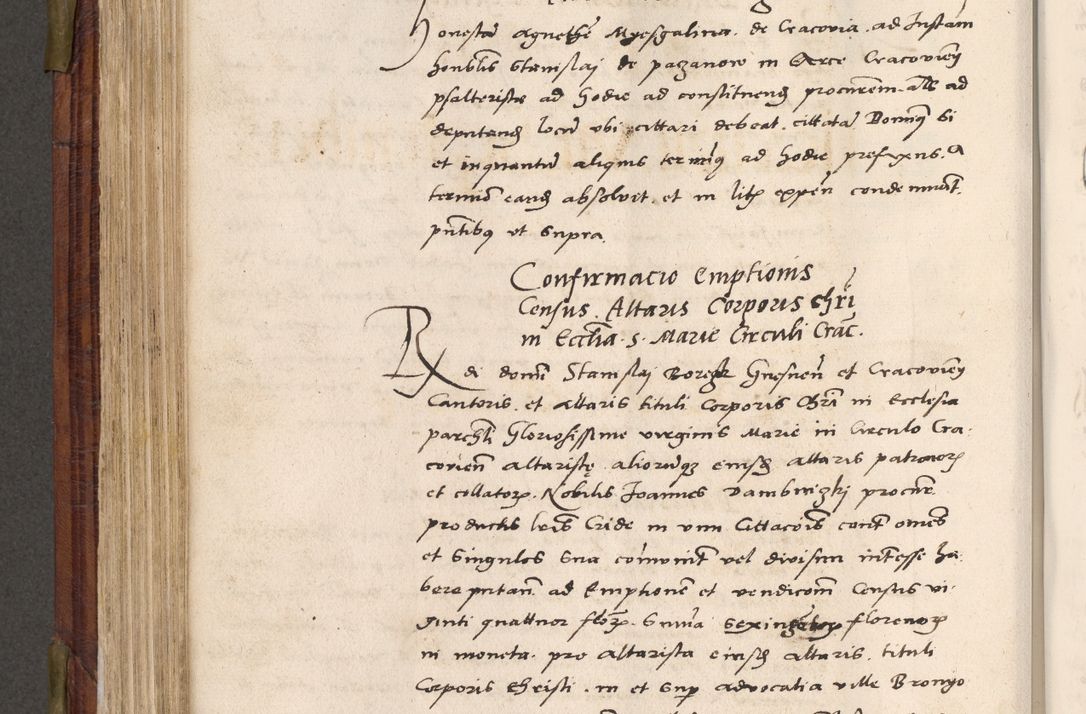 honestam Agnethem Myesgalina. de Cracovia. ad Instam
honblis Stanislaj de paczanow in Arce Cracovien
psalteriste ad hodie ad constituend procurem als ad
deputand locum vbi cittari debeat. cittatam Domq si
et inquantum aliquis terminq ad hodie prefixus. A
termino eand absolvit. et in litis expen condemnavit.
pntibq vt supra
Confirmacio Emptionis
Census. Altaris Corporis chri
in Ecclia. s. Marie Circuli Crac.
Rdi domi Stanislaj Borzek Gnesnen et Cracovien
Cantoris. et Altaris tituli Corporis Chri in Ecclesia
parchli Gloriosissime virginis Marie in Circulo Cra-
covien altariste aliorumq eiusd altaris patronorum
et collatorum. Nobilis Joannes procur.
productis lris Cride in vim Cittacois contra omnes
et singulos sua comunit vel divisim intesse ha-
bere putan ad Emptionem et vendicom Census vi-
ginti quattuor floren. Summa florenorum
in moneta. pro altarista eiusd altaris. tituli
Corporis Christi. in et sup advocatia ville Brongo